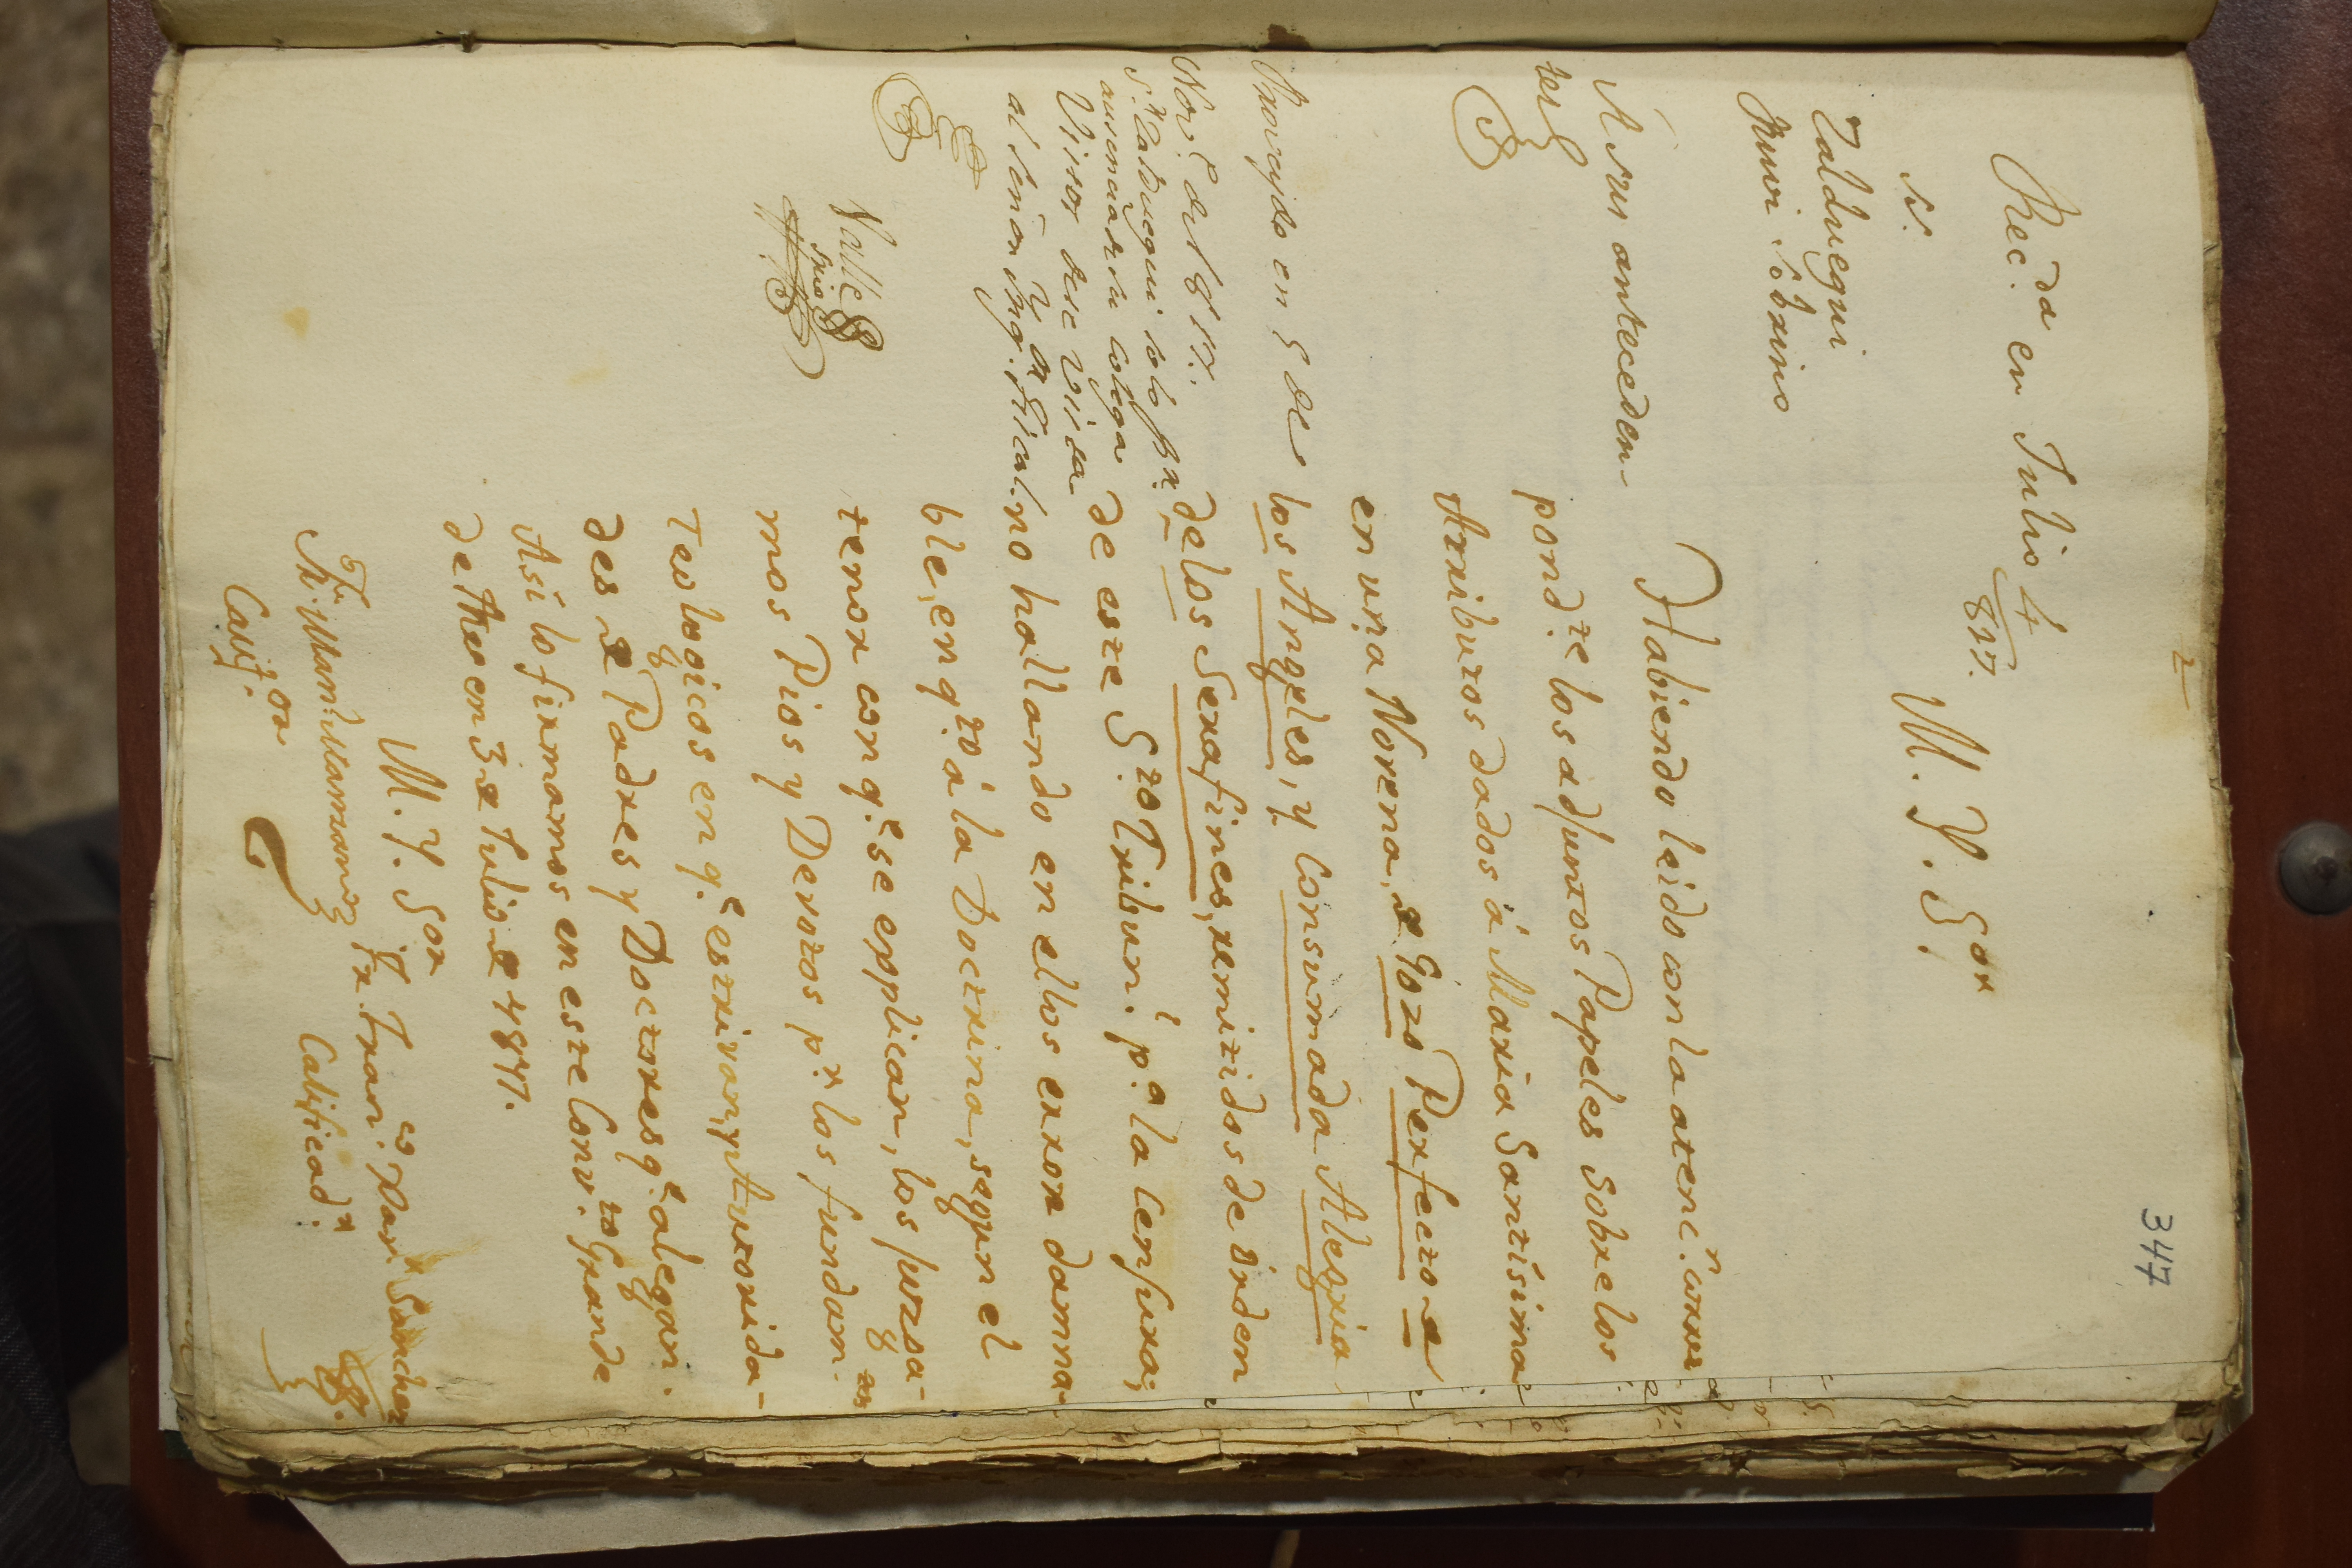 2
347
Rec.da en Julio 4
817.
S.
Zalduegui
Ruvi Sobrino
A sus anteceden-
tes
Proveydo en 5 de
Nov.e de 1817.
S.r Zalduegui solo p.r
ausencia de su colega
Visto dese vista
al señor Ynq.r Fiscal.
Valle
Srio
M. Y. S.or
Habiendo leido con la atenc.n corres
pond.te los adjuntos Papeles sobre los
Atributos dados á Maria Santisima
en una Novena, de Gozo Perfecto de
los Angeles, y Consumada Alegria
de los Serafines, remitidos de órden
de este S.to Tribun.l p.a la Censura;
no hallando en ellos error damna-
ble, en q.to á la Doctrina, segun el
tenor con q.e se epplican, los juzga-
mos Pios y Devotos p.r los fundam.tos
Teologicos en q.e estrivan, y Autorida-
des de Padres y Doctores q.e alegan.
Asi lo firmamos en este Conv.to Grande
de Mex.co en 3 de Julio de 1817.
M. Y. Sor
Fr. Man.l
Calif.or
Fr. Fran.co Sanchez
Calificad.r